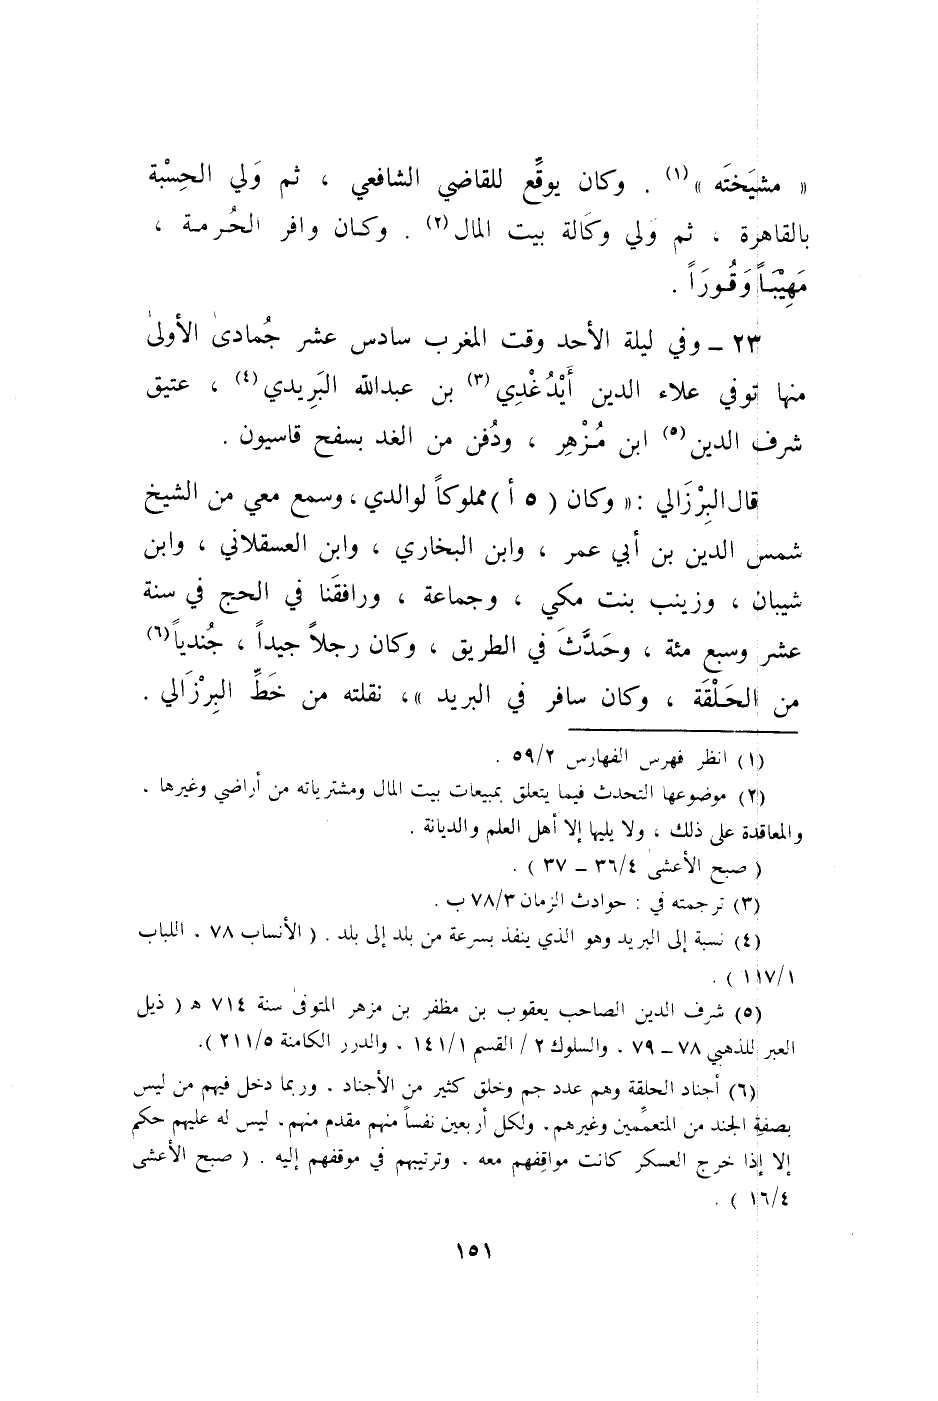 « مشيَخته »(١) . وكان يوقِّع للقاضي الشافعي ، ثم وَلي الحِسْبة
بالقاهرة ، ثم وَلي وكَالة بيت المال(٢) . وكـان وافر الحُرمـة ،
مَهِيْبَـاً وَقُـورَاً .
٢٣ ـ وفي ليلة الأحد وقت المغرب سادس عشر جُمادىٰ الأولىٰ
منها توفي علاء الدين أَيْدُغْدِي(٣) بن عبدالله البَرِيدي(٤) ، عتيق
شرف الدين(٥) ابن مُـزْهِر ، ودُفن من الغد بسفح قاسيون .
قال البِرْزَالي : « وكان ( ٥ أ ) مملوكاً لوالدي ، وسمع معي من الشيخ
شمس الدين بن أبي عمر ، وابن البخاري ، وابن العسقلاني ، وابن
شيبان ، وزينب بنت مكي ، وجماعة ، ورافقَنا في الحج في سنة
عشر وسبع مئة ، وحَـدَّثَ في الطريق ، وكان رجلاً جيداً ، جُندياً(٦)
من الحَـلْقَة ، وكان سافر في البريد »، نقلته من خَطِّ البِرْزَالي .
(١) انظر فهرس الفهارس ٥٩/٢ .
(٢) موضوعها التحدث فيما يتعلق بمبيعات بيت المال ومشترياته من أراضي وغيرها .
والمعاقدة على ذلك ، ولا يليها إلا أهل العلم والديانة .
( صبح الأعشىٰ ٣٦/٤ ـ ٣٧ ) .
(٣) ترجمته في : حوادث الزمان ٧٨/٣ ب .
(٤) نسبة إلى البريد وهو الذي ينفذ بسرعة من بلد إلى بلد . ( الأنساب ٧٨ . اللباب
١١٧/١ ) .
(٥) شرف الدين الصاحب يعقوب بن مظفر بن مزهر المتوفىٰ سنة ٧١٤ هـ ( ذيل
العبر للذهبي ٧٨ ـ ٧٩ . والسلوك ٢ / القسم ١٤١/١ . والدرر الكامنة ٢١١/٥ ).
(٦) أجناد الحلقة وهم عدد جم وخلق كثير من الأجناد . وربما دخل فيهم من ليس
بصفة الجند من المتعمِّمين وغيرهم. ولكل أربعين نفساً منهم مقدم منهم. ليس له عليهم حكم
إلا إذا خرج العسكر كانت مواقفهم معه . وترتيبهم في موقفهم إليه . ( صبح الأعشى
١٦/٤ ) .
١٥١